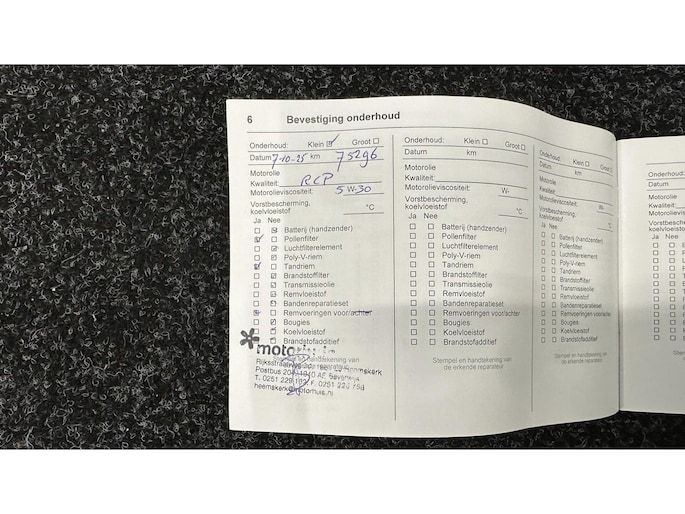 6 Bevestiging onderhoud
Onderhoud: Klein Groot
Datum 7-10-25 km 75296
Motorolie
Kwaliteit: RCP
Motorolieviscositeit: 5 W-30
Vorstbescherming,
koelvloeistof °C
Ja Nee
Batterij (handzender)
Pollenfilter
Luchtfilterelement
Poly-V-riem
Tandriem
Brandstoffilter
Transmissieolie
Remvloeistof
Bandenreparatieset
Remvoeringen voor/achter
Bougies
Koelvloeistof
Brandstofadditief
heemskerk@motorhuis.nl
Onderhoud: Klein Groot
Datum km
Motorolie
Kwaliteit:
Motorolieviscositeit: W-
Vorstbescherming,
koelvloeistof °C
Ja Nee
Batterij (handzender)
Pollenfilter
Luchtfilterelement
Poly-V-riem
Tandriem
Brandstoffilter
Transmissieolie
Remvloeistof
Bandenreparatieset
Remvoeringen voor/achter
Bougies
Koelvloeistof
Brandstofadditief
Stempel en handtekening van
de erkende reparateur
Onderhoud: Klein Groot
Datum km
Motorolie
Kwaliteit:
Motorolieviscositeit: W-
Vorstbescherming,
koelvloeistof °C
Ja Nee
Batterij (handzender)
Pollenfilter
Luchtfilterelement
Poly-V-riem
Tandriem
Brandstoffilter
Transmissieolie
Remvloeistof
Bandenreparatieset
Remvoeringen voor/achter
Bougies
Koelvloeistof
Brandstofadditief
Stempel en handtekening van
de erkende reparateur
Onderhoud:
Datum
Motorolie
Kwaliteit:
Ja Nee